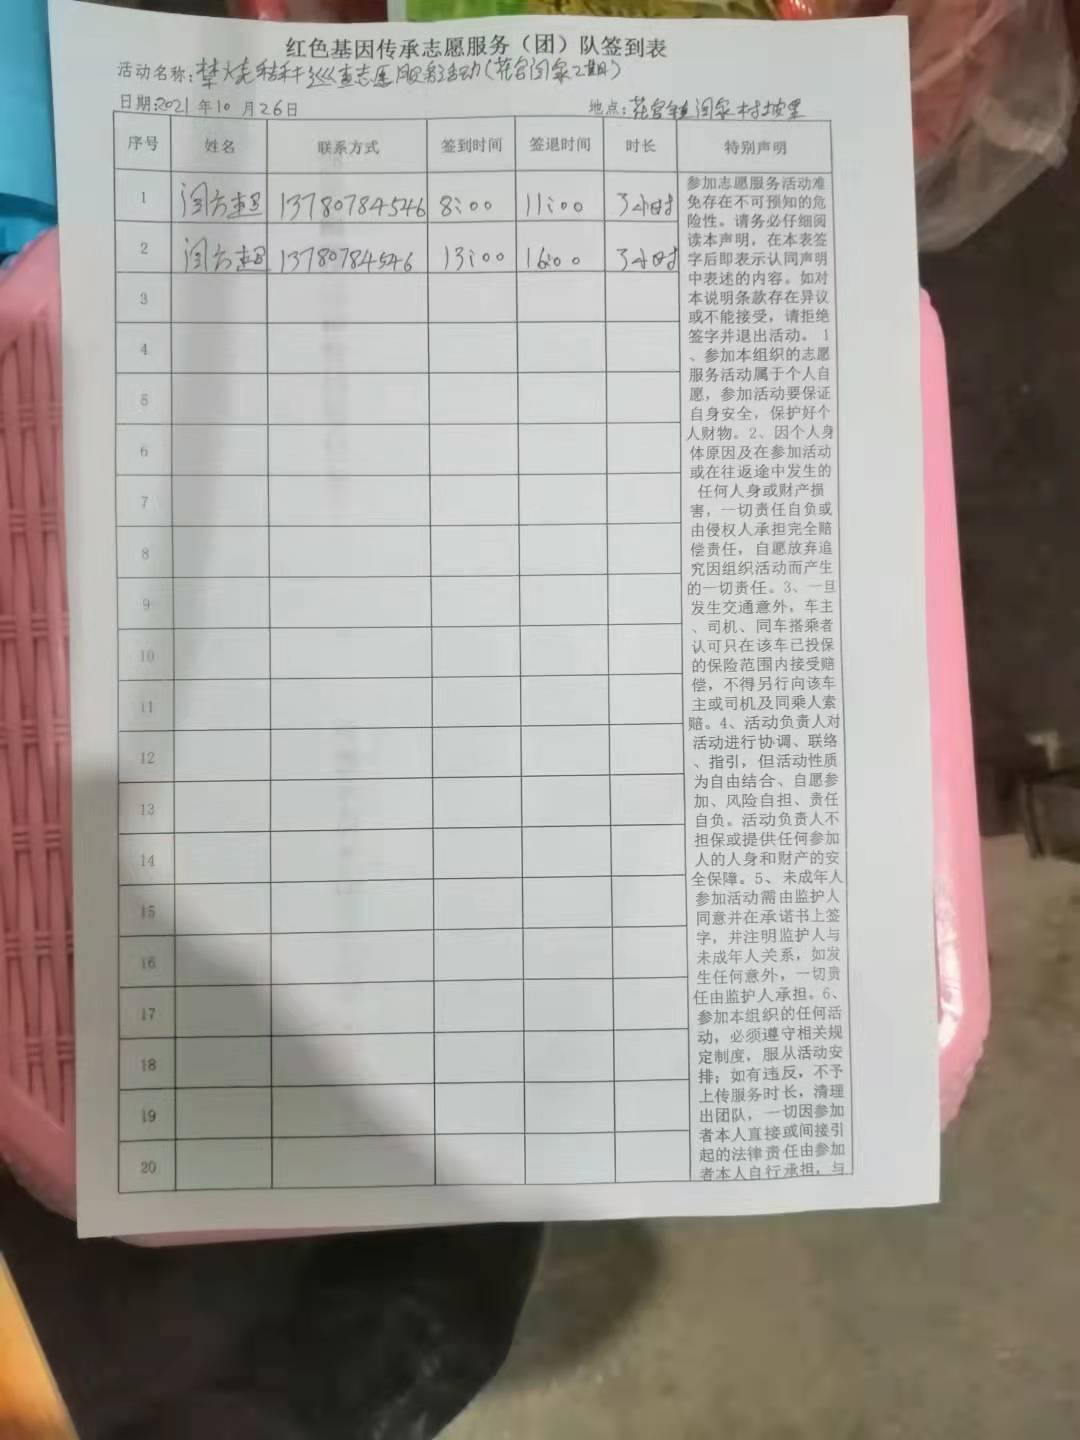 红色基因传承志愿服务（团）队签到表
活动名称：禁烧秸秆巡查志愿服务活动（花官闫家2期）
日期：2021年10月26日 地点：花官镇闫家村坡里
序号 姓名 联系方式 签到时间 签退时间 时长 特别声明
1 闫方超 13780784546 8:00 11:00 3小时
2 闫方超 13780784546 13:00 16:00 3小时
3
4
5
6
7
8
9
10
11
12
13
14
15
16
17
18
19
20
参加志愿服务活动难
免存在不可预知的危
险性。请务必仔细阅
读本声明，在本表签
字后即表示认同声明
中表述的内容。如对
本说明条款存在异议
或不能接受，请拒绝
签字并退出活动。1
、参加本组织的志愿
服务活动属于个人自
愿，参加活动要保证
自身安全，保护好个
人财物。2、因个人身
体原因及在参加活动
或在往返途中发生的
任何人身或财产损
害，一切责任自负或
由侵权人承担完全赔
偿责任，自愿放弃追
究因组织活动而产生
的一切责任。3、一旦
发生交通意外，车主
、司机、同车搭乘者
认可只在该车已投保
的保险范围内接受赔
偿，不得另行向该车
主或司机及同乘人索
赔。4、活动负责人对
活动进行协调、联络
、指引，但活动性质
为自由结合、自愿参
加、风险自担、责任
自负。活动负责人不
担保或提供任何参加
人的人身和财产的安
全保障。5、未成年人
参加活动需由监护人
同意并在承诺书上签
字，并注明监护人与
未成年人关系，如发
生任何意外，一切责
任由监护人承担。6、
参加本组织的任何活
动，必须遵守相关规
定制度，服从活动安
排；如有违反，不予
上传服务时长，清理
出团队，一切因参加
者本人直接或间接引
起的法律责任由参加
者本人自行承担，与